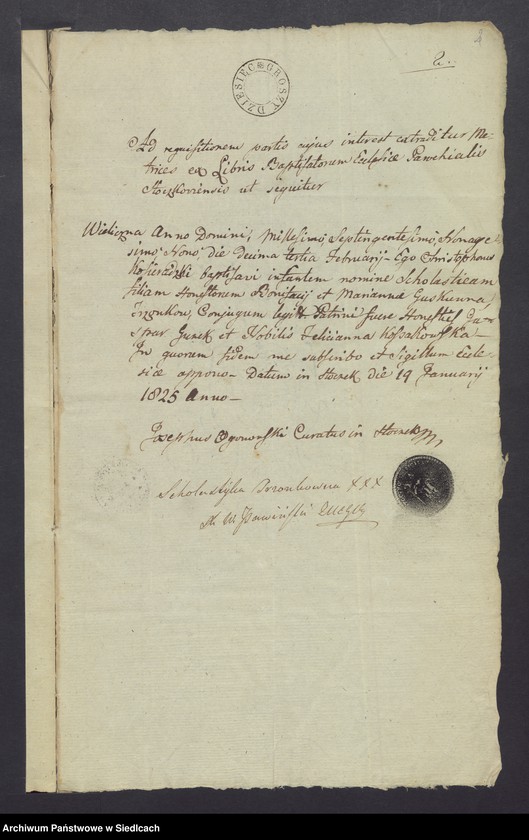 2.
DZIESIĘĆ GROSZY
Ad requisitionem partis cujus interest extraditur Me-
trices ex Libris Baptisatorum Ecclesiæ Parochialis
ut sequitur
Wieliczna Anno Domini, Millesimo, Septingentesimo, Nonage
simo, Nono, Die Decima tertia Februarij – Ego Christophorus
Kosieradzki baptisavi infantem nomine Scholasticam
filiam Honestorum Bonifacij et Marianna
Conjugum legitt. Patrini fuere Honestus Ga-
spar et Nobilis Felicianna Kossakowska –
In quorem fidem me subscribo et Sigillum Eccle-
siæ appono – Datum in Stoczek die 19 Januarij
1825 Anno –
Josephus Curatus in Stoczek
Scholastyka XXX